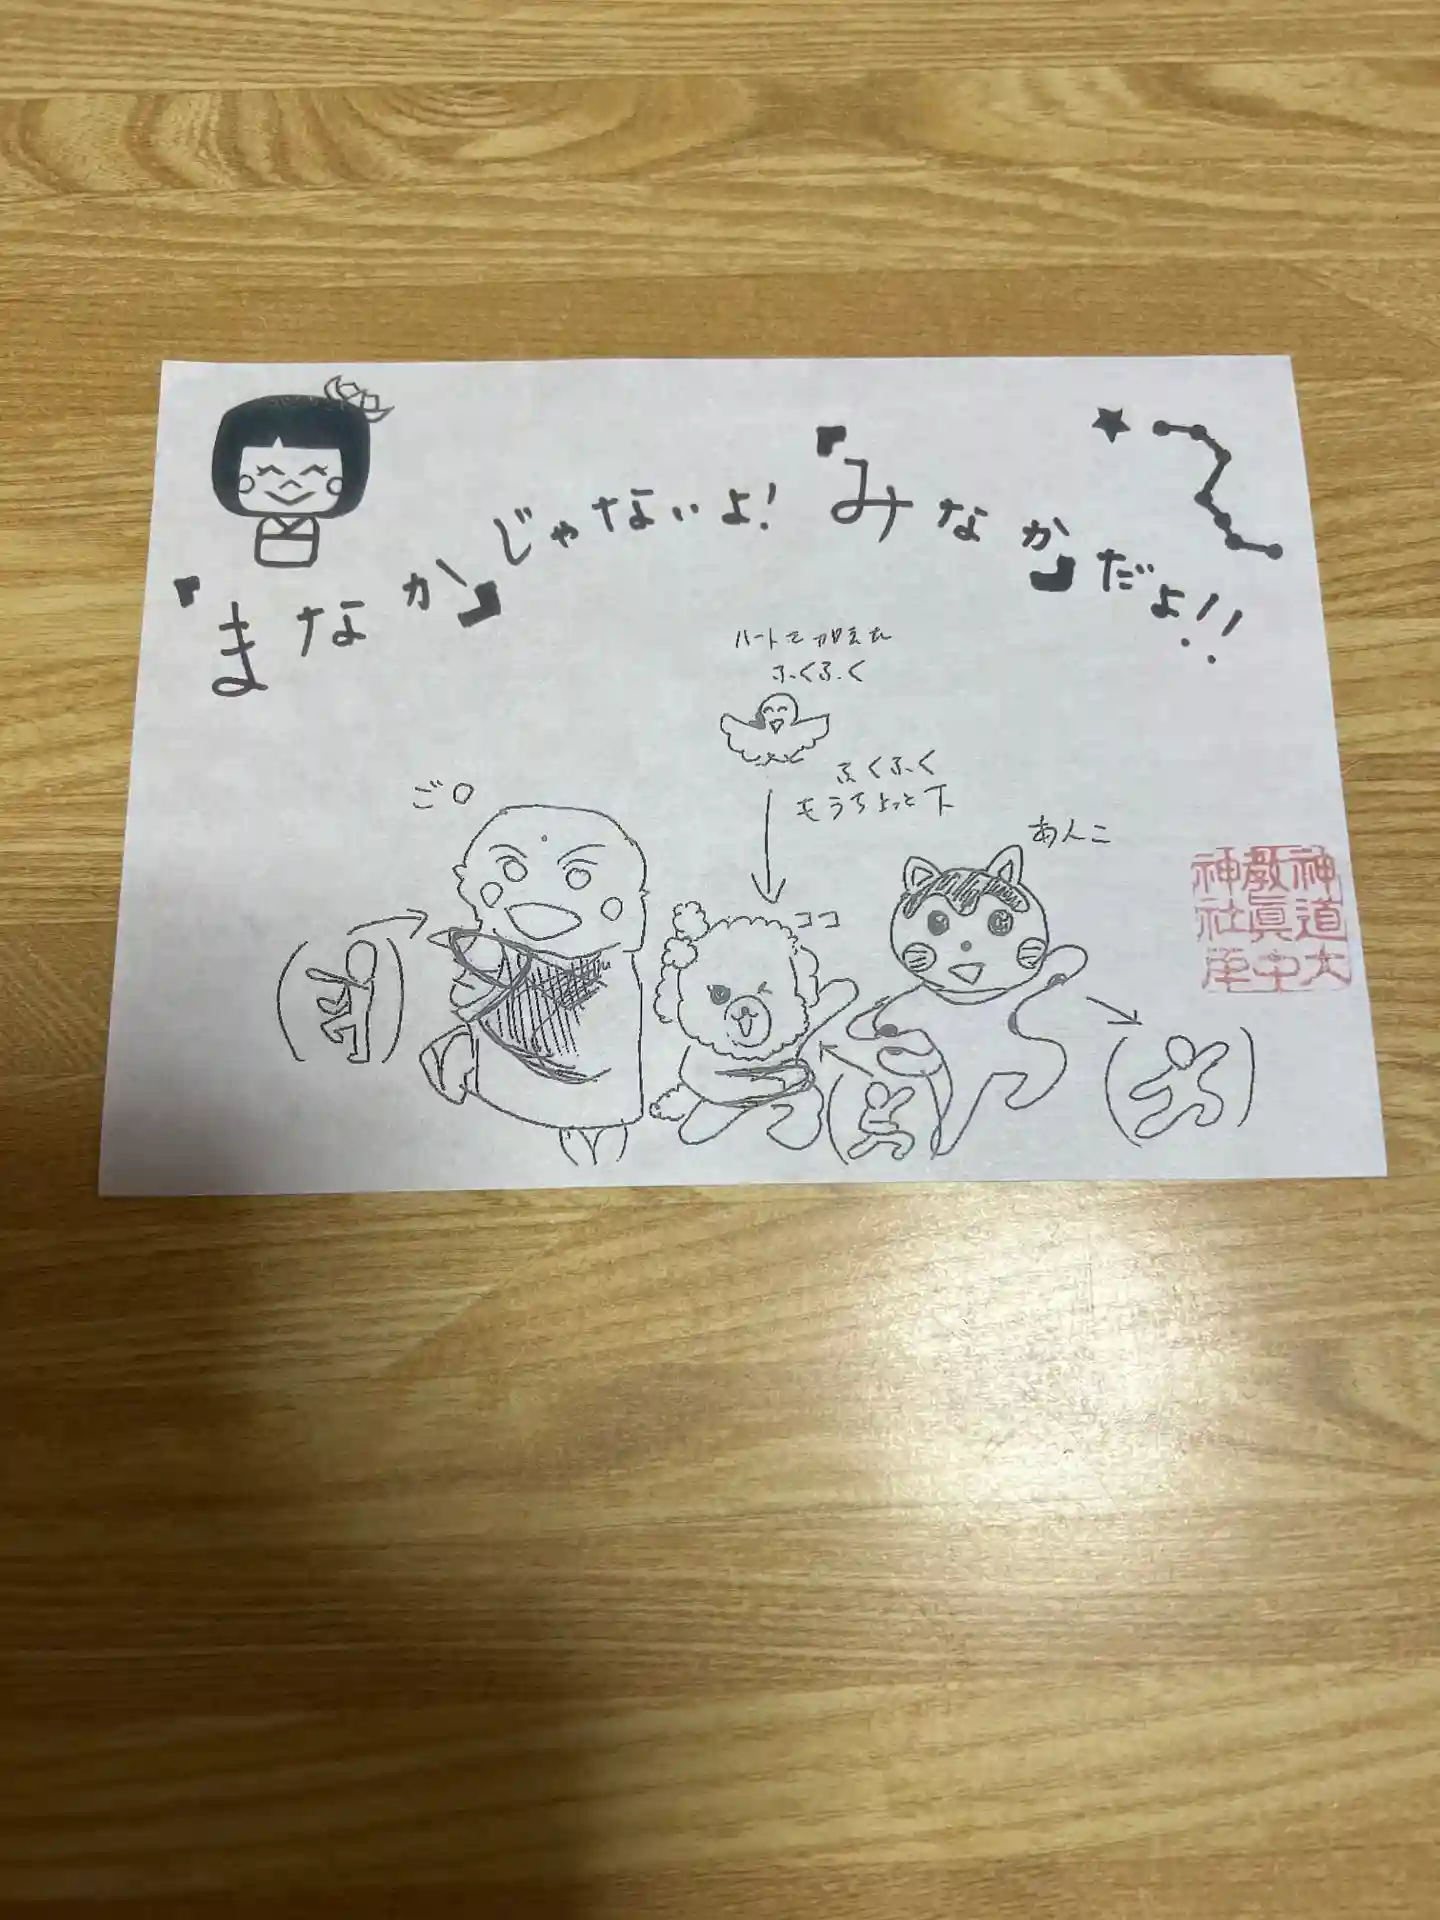 『まなか』じゃないよ!『みなか』だよ!!
ふくふく
ふくふく
もうちょっと下
ご○
ココ
あんこ
神道大
教眞中
神社